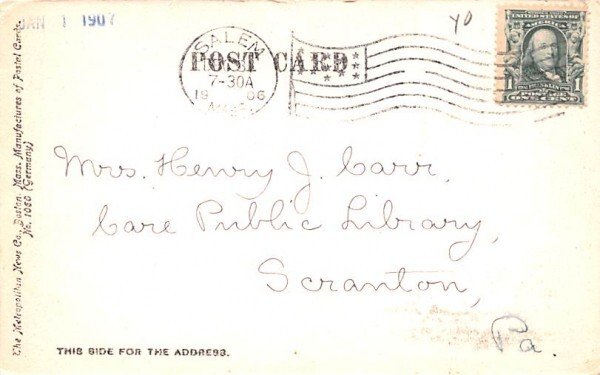 JAN 1 1907
40
SALEM
7-30A
19 06
MASS
POST CARD
UNITED STATES OF
AMERICA
1 FRANKLIN 1
POSTAGE
ONE CENT
Mrs. Henry J. Carr,
Care Public Library,
Scranton,
Pa.
THIS SIDE FOR THE ADDRESS.
The Metropolitan News Co., Boston, Mass. Manufactures of Postal Cards.
No. 1050 (Germany)